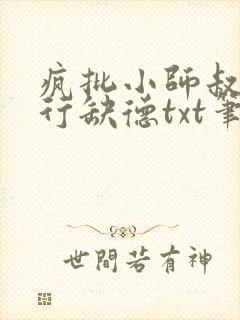 疯批小师叔
行缺德txt笔
世間若有神